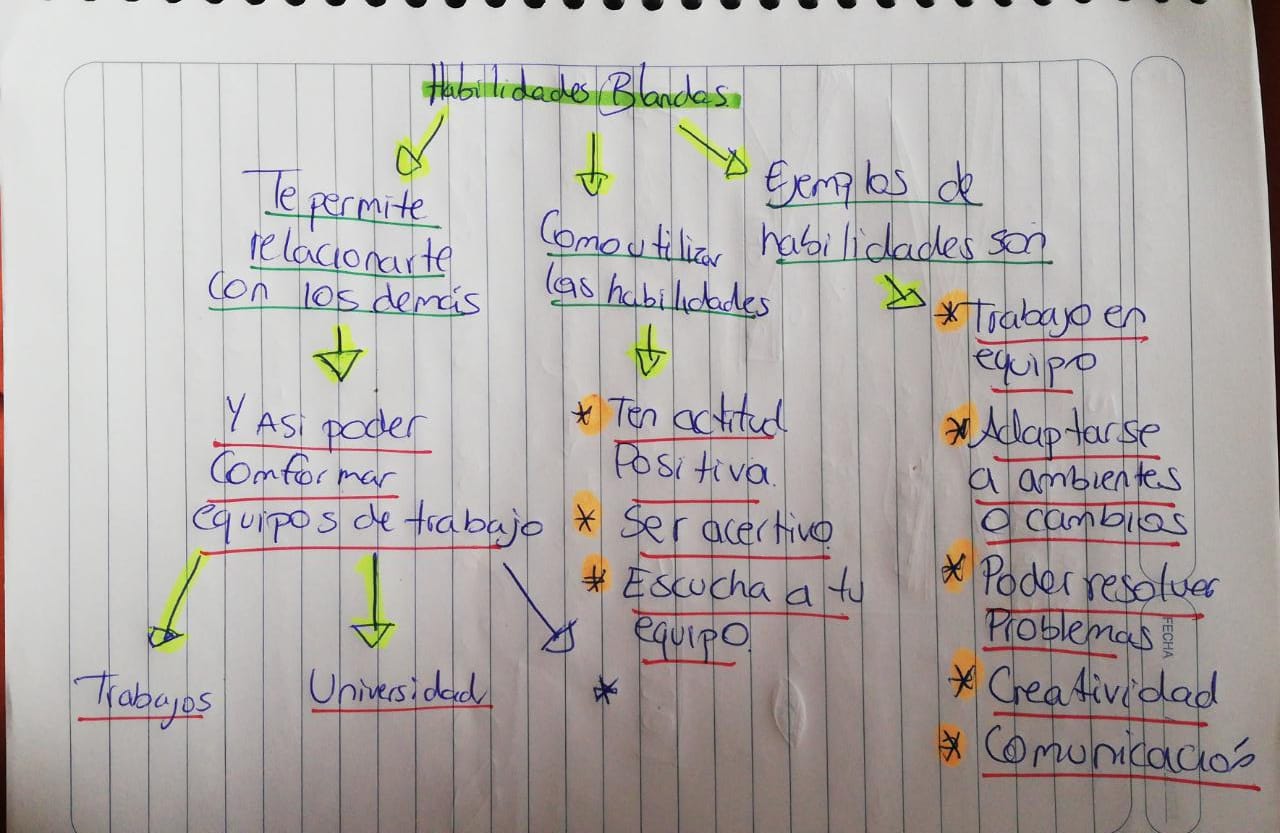 Habilidades Blandas
Te permite
relacionarte
con los demás
Y Asi poder
Comformar
equipos de trabajo
Trabajos
Universidad
Como utilizar
las habilidades
* Ten actitud
Positiva.
* Ser acertivo
* Escucha a tu
equipo.
*
Ejemplos de
habilidades son
* Trabajo en
equipo
* Adaptarse
a ambientes
o cambios
* Poder resolver
Problemas
* Creatividad
* Comunicación
FECHA